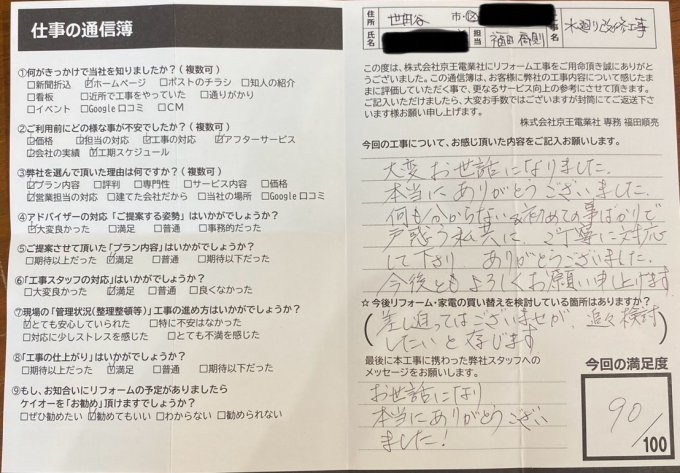 仕事の通信簿
①何がきっかけで当社を知りましたか?(複数可)
□新聞折込 ☑ホームページ □ポストのチラシ □知人の紹介
□看板 □近所で工事をやっていた □通りがかり
□イベント □Google口コミ □CM
②ご利用前にどの様な事が不安でしたか?(複数可)
☑価格 ☑担当の対応 ☑工事の対応 ☑アフターサービス
☑会社の実績 ☑工期スケジュール
③弊社を選んで頂いた理由は何ですか?(複数可)
☑プラン内容 □評判 □専門性 □サービス内容 □価格
☑営業担当の対応 □建てた会社だから □当社の場所 □Google口コミ
④アドバイザーの対応「ご提案する姿勢」はいかがでしょうか?
☑大変良かった □満足 □普通 □事務的だった
⑤ご提案させて頂いた「プラン内容」はいかがでしょうか?
□期待以上だった ☑満足 □普通 □期待以下だった
⑥「工事スタッフの対応」はいかがでしょうか?
□大変良かった ☑満足 □普通 □良くなかった
⑦現場の「管理状況(整理整頓等)」工事の進め方はいかがでしょうか?
☑とても安心していられた □特に不安はなかった
□対応に少しストレスを感じた □とても不満を感じた
⑧「工事の仕上がり」はいかがでしょうか?
□期待以上だった ☑満足 □普通 □期待以下だった
⑨もし、お知合いにリフォームの予定がありましたら
ケイオーを「お勧め」頂けますでしょうか?
□ぜひ勧めたい ☑勧めてもいい □わからない □勧められない
住所 世田谷 市・区
氏名 担当 福田 工事名 水廻り改修工事
この度は、株式会社京王電業社にリフォーム工事をご用命頂き誠にありがとうございました。この通信簿は、お客様に弊社の工事内容について感じたままに評価していただく事で、更なるサービス向上の参考にさせて頂きます。
ご記入いただけましたら、大変お手数ではございますが封筒にてご返送下さいます様お願い申し上げます。
株式会社京王電業社 専務 福田順亮
今回の工事について、お感じ頂いた内容をご記入お願いします。
大変お世話になりました。
本当にありがとうございました。
何も分からない&初めての事ばかりで
戸惑う私共に、ご丁寧に対応
して下さり ありがとうございました。
今後ともよろしくお願い申し上げます
☆今後リフォーム・家電の買い替えを検討している箇所はありますか?
(差し迫ってはございませが、追々検討
したいと存じます)
最後に本工事に携わった弊社スタッフへの
メッセージをお願いします。
お世話になり
本当にありがとうござい
ました!
今回の満足度
90/100